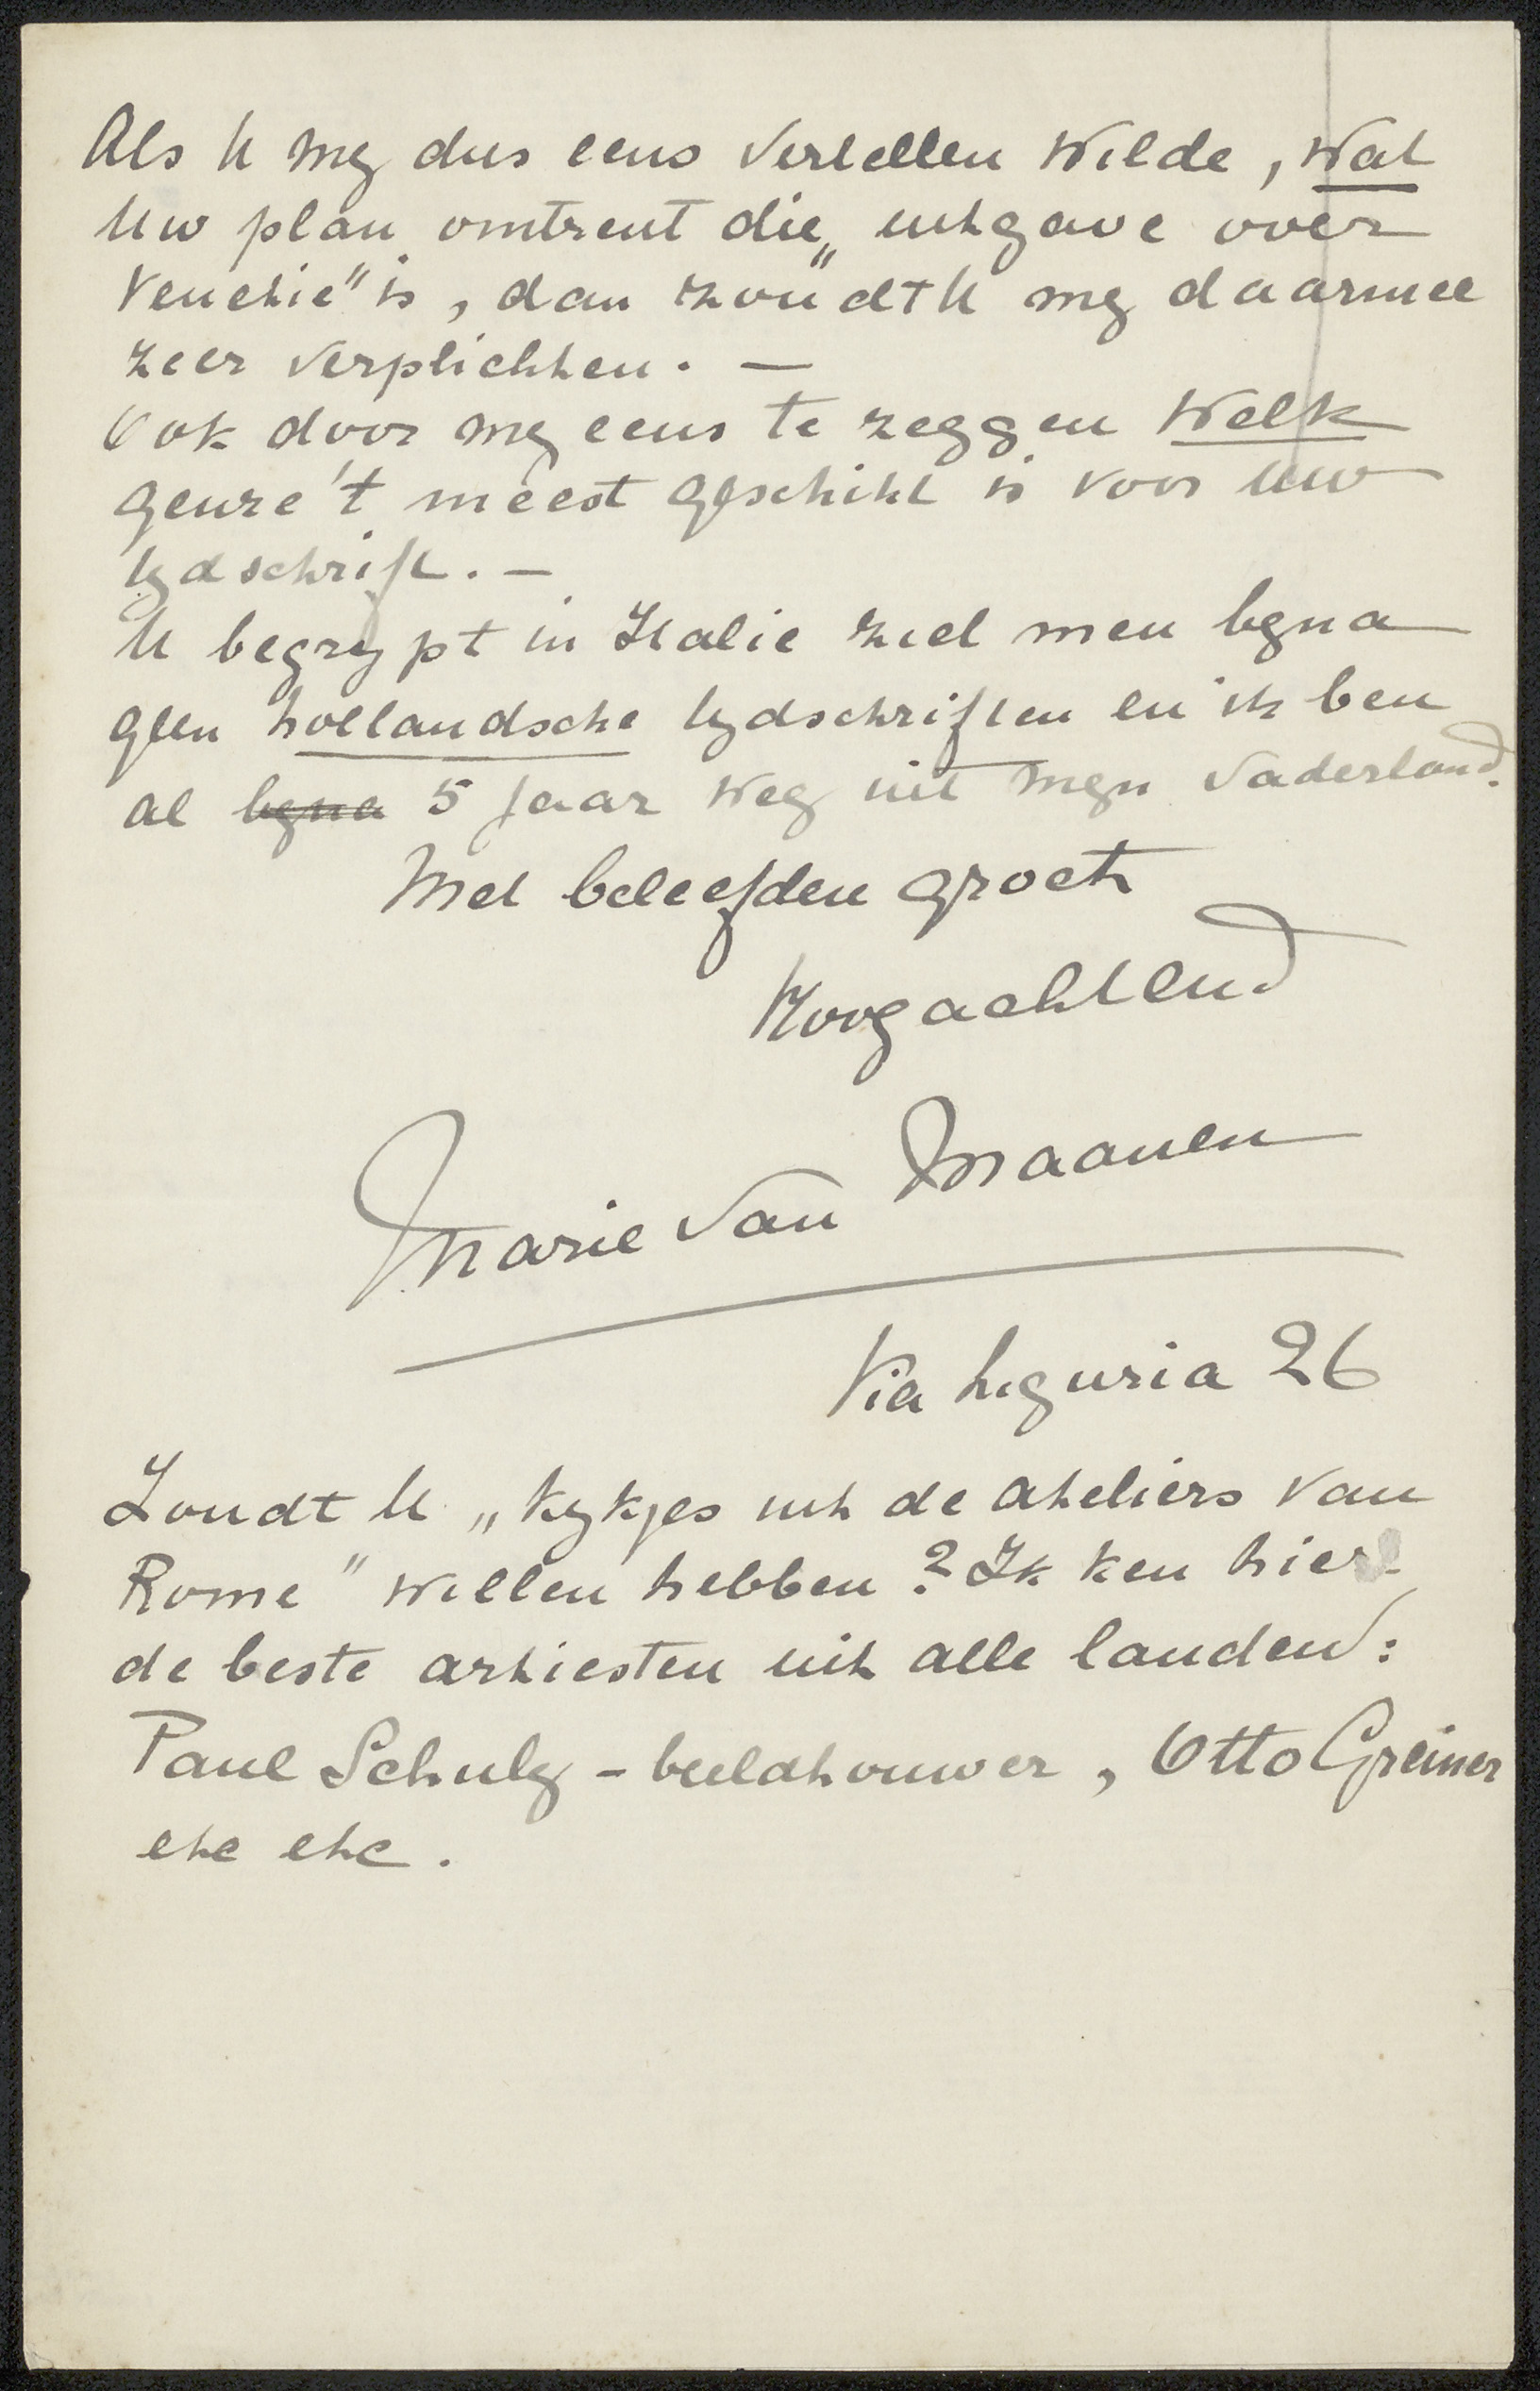 Als U my dus eens vertellen wilde, wat
Uw plan omtrent die „uitgave over
Venetie" is, dan zoudt U my daarmee
zeer verplichten. —
Ook door my eens te zeggen welk
genre 't meest geschikt is voor uw
tydschrift. —
U begrypt in Italie ziet men byna
geen hollandsche tydschriften en ik ben
al byna 5 jaar weg uit myn vaderland.
Met beleefden groet
Hoogachtend
Marie van Maanen
Via Liguria 26
Zoudt U „kykjes uit de ateliers van
Rome" willen hebben? Ik ken hier
de beste artiesten uit alle landen:
Paul Schulz - beeldhouwer, Otto Greiner
etc etc.